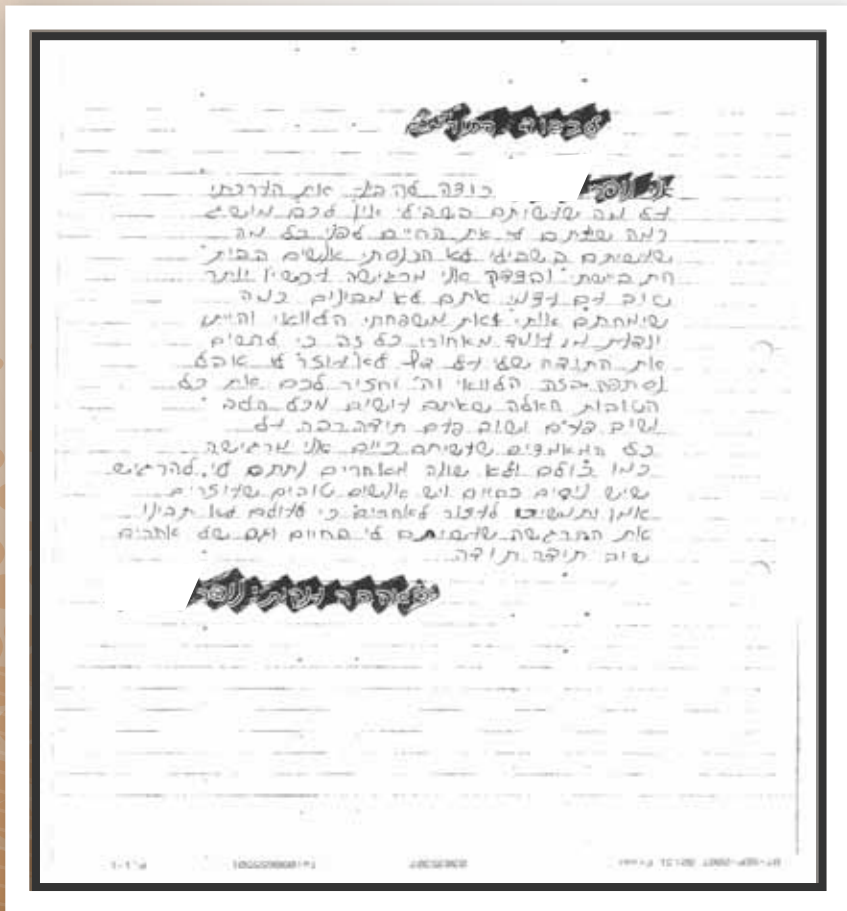 לכבוד
אני נופר רוצה להביע את הערכתי
על מה שעשיתם בשבילי אין לכם מושג
כמה שניתם לי את החיים לפני כל מה
שעשיתם בשבילי לא הכנסתי אנשים הבית
התביישתי ובצדק אני מרגישה עכשיו יותר
טוב עם עצמי אתם לא מבינים כמה
שימחתם אותי ואת משפחתי הלוואי והייתי
יודעת מי עומד מאחורי כל זה כי לרשום
את התודה שלי על דף לא עוזר לי
בזה הלוואי וה' יחזיר לכם את כל
הטובות האלה שאתם עושים מכל הלב
שוב פעם ושוב פעם תודה רבה על
כל המאמצים שעשיתם כיום אני מרגישה
כמו כולם ולא שונה מאחרים נתתם לי להרגיש
שיש ניסים בחיים ויש אנשים טובים שעוזרים
אמן ותמשיכו לעזור לאחרים כי לעולם לא תבינו
את ההרגשה שעשיתם לי בחיים וגם של אחרים
שוב תודה תודה
באהבה ענקית: נופר